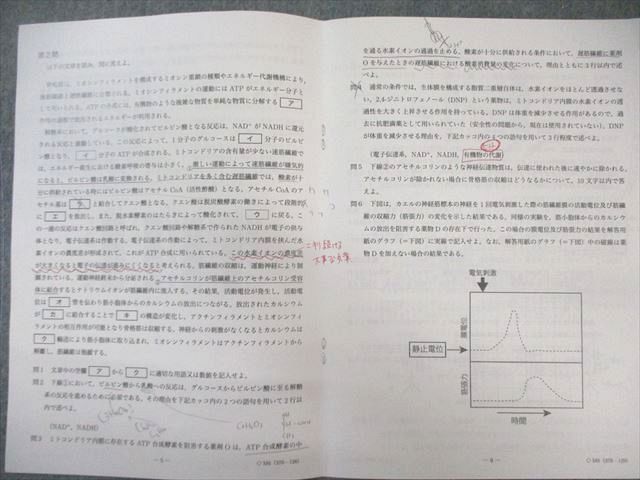 第2問
以下の文章を読み、問に答えよ。
骨格筋は、ミオシンフィラメントを構成するミオシン重鎖の種類やエネルギー代謝機構により、
して用いられる。ATPの合成には、有機物のような複雑な物質を単純な物質に分解する ア
作用の過程で放出されるエネルギーが利用される。
解糖系において、グルコースが酸化されてピルビン酸となる反応は、NAD⁺がNADHに還元
される反応と連動している。この反応によって、1分子のグルコースは イ 分子のピルビ
ン酸となり、 イ 分子のATPが合成される。ミトコンドリアの含有量が少ない速筋繊維で
は、エネルギー産生における酸素呼吸の寄与は小さく、
になると、ピルビン酸は乳酸に変換される。ミトコンドリアを多く含む遅筋繊維では、酸素が十
分に供給されている時にはピルビン酸はアセチルCoA(活性酢酸)となる。アセチルCoAのア
セチル基は
に エ を放出し、また、脱水素酵素のはたらきによって酸化されて、 ウ に戻る。こ
の一連の反応はクエン酸回路と呼ばれ、クエン酸回路や解糖系で作られたNADHが電子の供与
体となり、電子伝達系が作動する。電子伝達系の作動によって、ミトコンドリアの内膜を挟んだ水
素イオンの濃度差が形成されて、これがATP合成に用いられる。この水素イオンの濃度差
が大きくなると電子の伝達が進みにくくなると考えられる。筋繊維の収縮は、運動神経により制
御されている。運動神経終末から分泌される アセチルコリンが筋繊維上のアセチルコリン受容
体に結合するとナトリウムイオンが筋繊維内に流入する。その結果、活動電位が発生し、活動電
位は オ 管を伝わり筋小胞体からのカルシウムの放出につながる。放出されたカルシウム
が カ に結合することで キ の構造が変化し、アクチンフィラメントとミオシンフィ
ラメントの相互作用が可能となり骨格筋は収縮する。神経からの刺激がなくなるとカルシウムは
ク 輸送により筋小胞体に取り込まれ、ミオシンフィラメントはアクチンフィラメントから
解離し、筋繊維は弛緩する。
問1 文章中の空欄 ア から ク に適切な用語又は数値を記入せよ。
問2 下線①において、ピルビン酸から乳酸への反応は、グルコースからピルビン酸に至る解糖
系の反応を進めるために必要である。その理由を下記カッコ内の2つの語句を用いて2行以
内で述べよ。
(NAD⁺, NADH)
問3 ミトコンドリア内膜に存在するATP合成酵素を阻害する薬剤Oは、ATP合成酵素の中
— 5 —
◇M6(375—128)
を通る水素イオンの通過を止める。酸素が十分に供給される条件において、遅筋繊維に薬剤
Oを与えたときの遅筋繊維における酸素消費量の変化について、理由とともに3行以内で述
べよ。
問4 通常の条件では、生体膜を構成する脂質二重層自体は、水素イオンをほとんど透過させな
い。2,4-ジニトロフェノール(DNP)という薬物は、ミトコンドリア内膜の水素イオンの透
過性を大きく上昇させる作用を持っている。DNPは体重を減少させる作用があるので、過
去に抗肥満薬として用いられていた(安全性の問題から、現在は使用されていない)。DNP
が体重を減少させる理由を、下記カッコ内の4つの語句を用いて3行程度で述べよ。
(電子伝達系, NAD⁺, NADH, 有機物の代謝)
問5 下線②のアセチルコリンのような神経伝達物質は、伝達に使われた後に速やかに除かれる。
アセチルコリンが除かれない場合に骨格筋の収縮はどうなるかについて、10文字以内で答
えよ。
問6 下図は、カエルの神経筋標本の神経を1回電気刺激した際の筋繊維膜の活動電位及び筋繊
維の収縮力(筋張力)の変化を示した結果である。同様の実験を、筋小胞体からのカルシウ
ムの放出を阻害する薬物Dの存在下で行った。この場合の膜電位及び筋張力の結果を解答用
紙のグラフ(=下図)に実線で記入せよ。なお、解答用紙のグラフ(=下図)中の破線は薬
物Dを加えない場合の結果である。
電気刺激
膜電位
静止電位
筋張力
時間
— 6 —
◇M6(375—129)